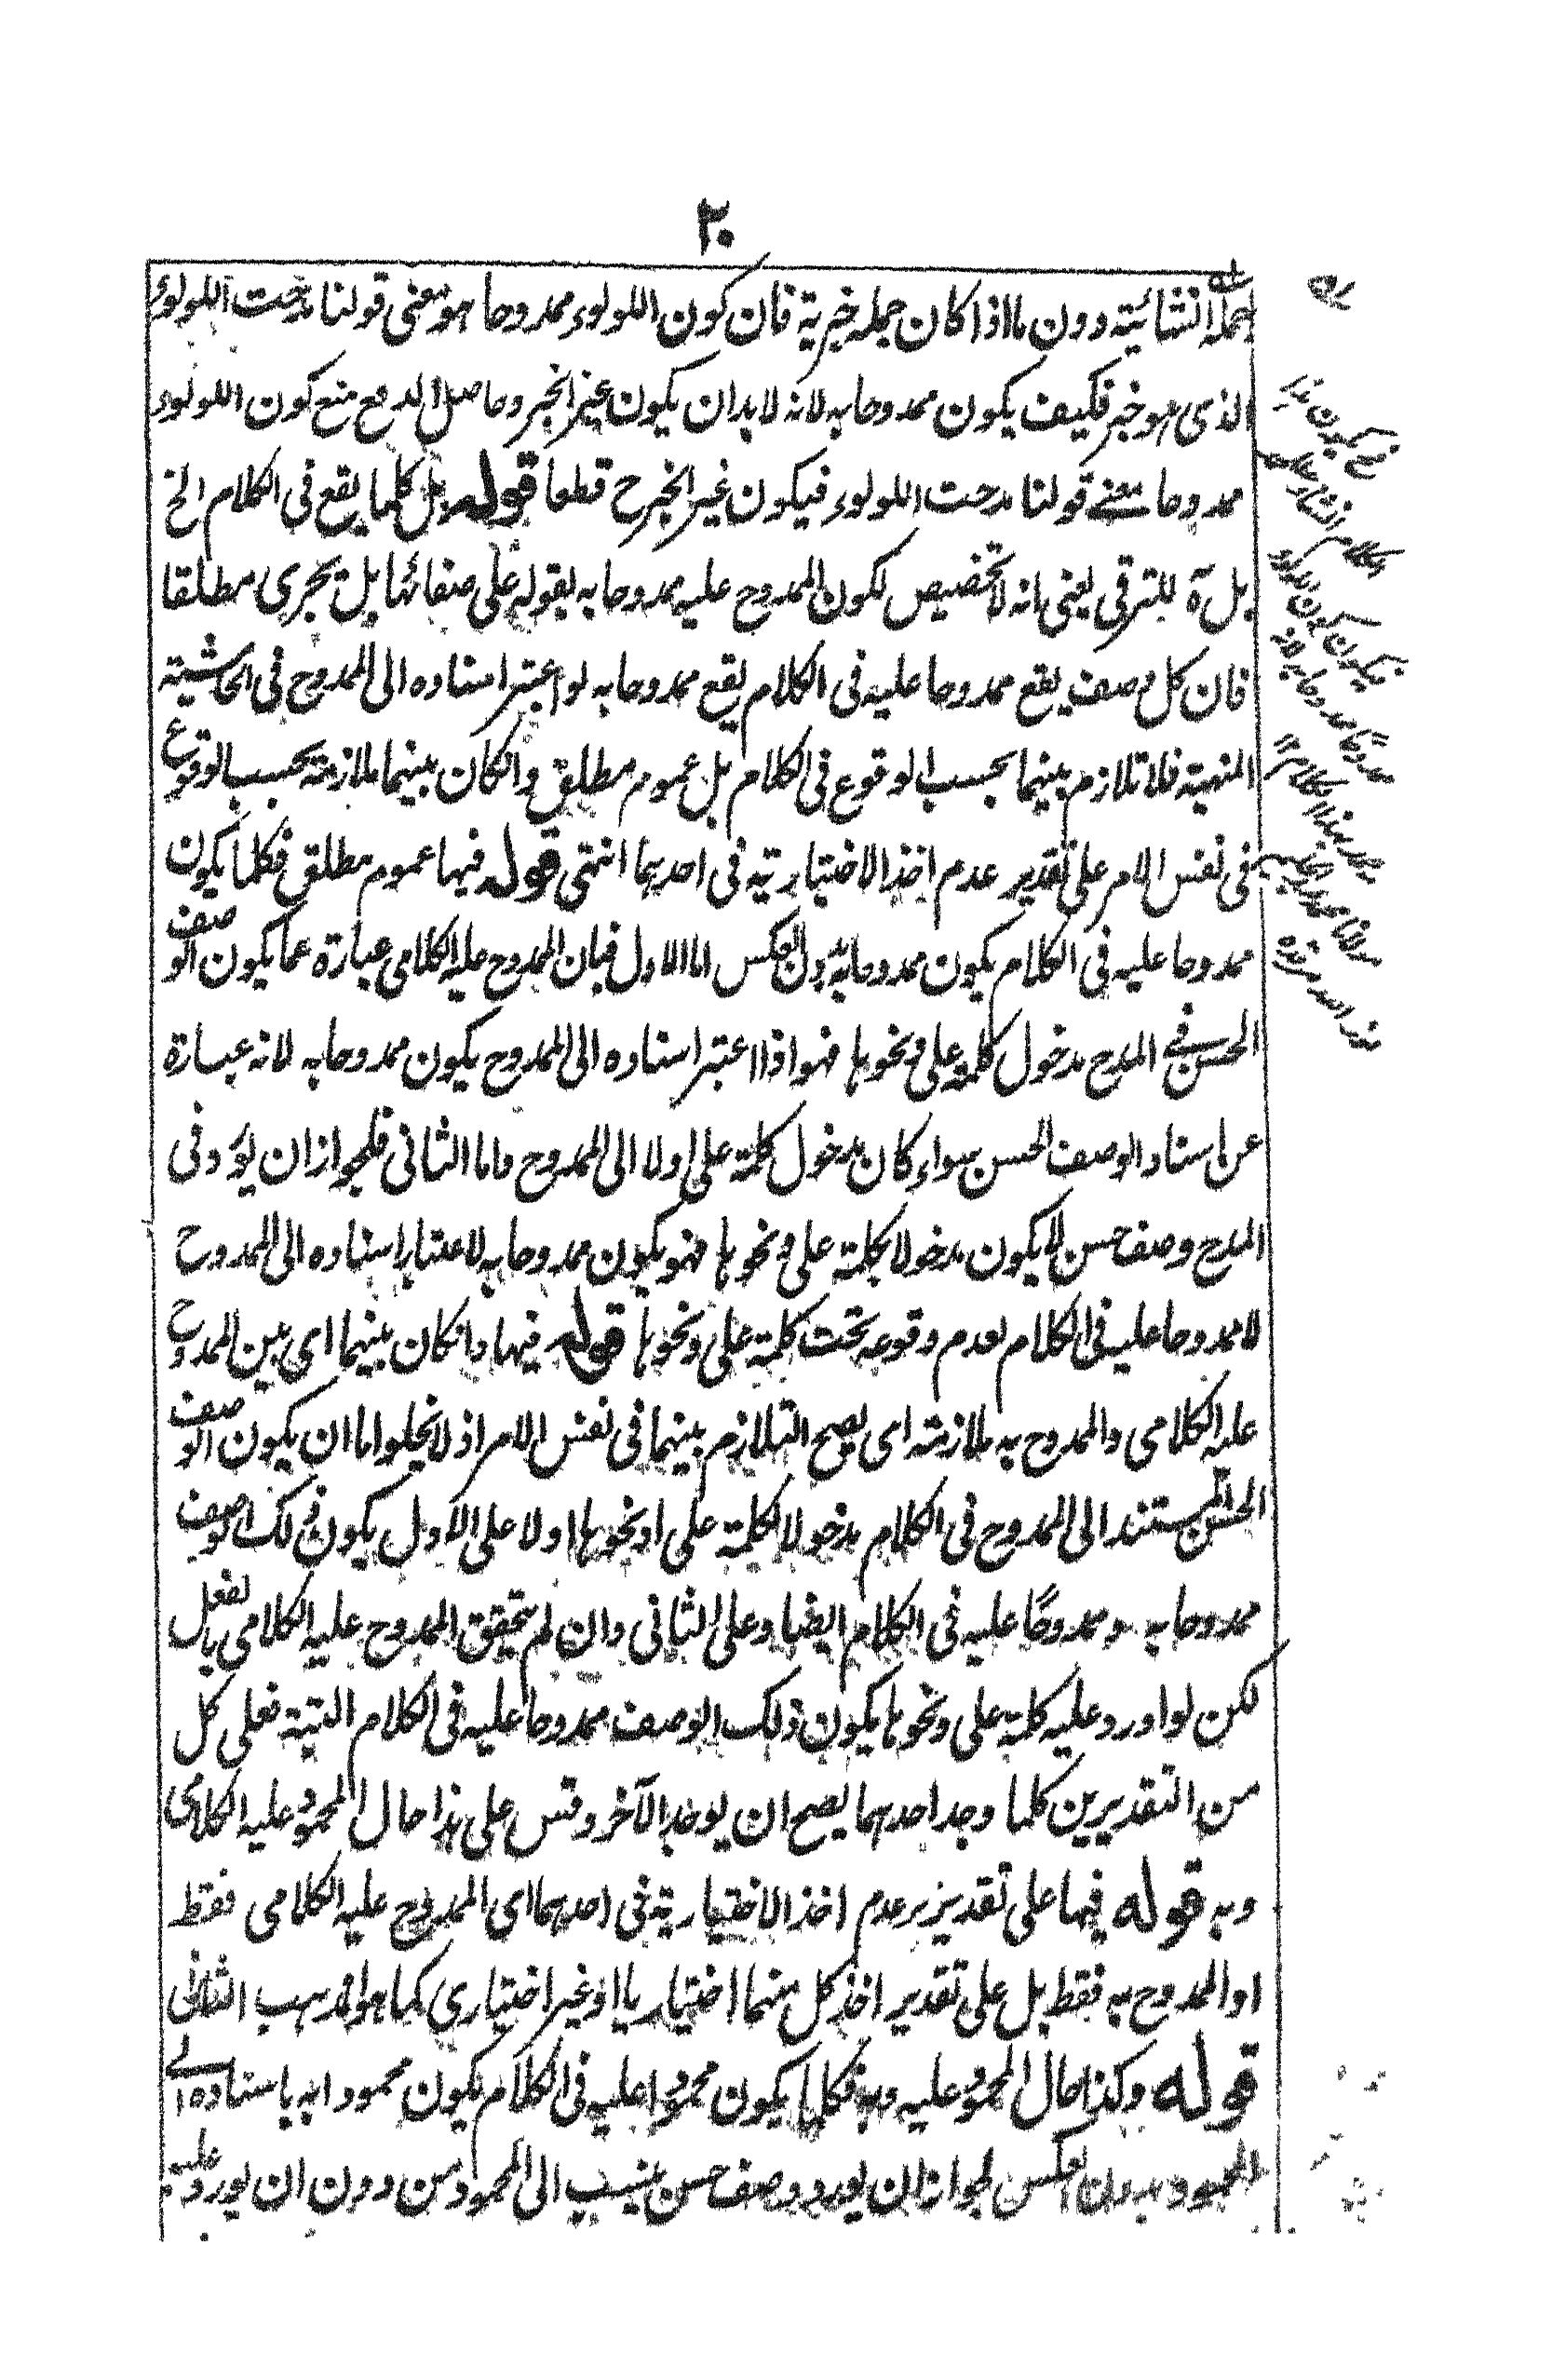 ٢٠
جملة انشائية دون ما اذا كان جملة خبرية فان كون اللولوء ممدوحا هو معنى قولنا مدحت اللولوء
الذى هو خبر فكيف يكون ممدوحا به لانه لا بد ان يكون غير الخبر وحاصل الدفع منع كون اللولوء
ممدوحا معنے قولنا مدحت اللولوء فيكون غير الخبر ح قطعا قوله بل كلما يقع فى الكلام الخ
بل ة للترقى يعنى انه لا تخصيص لكون الممدوح عليه ممدوحا به بقوله على صفائها بل يجرى مطلقا
فان كل وصف يقع ممدوحا عليه فى الكلام يقع ممدوحا به لو اعتبر اسناده الى الممدوح فى الحاشية
المنهية فلا تلازم بينهما بحسب الوقوع فى الكلام بل عموم مطلق وانكان بينهما ملازمة بحسب الوقوع
فى نفس الامر على تقدير عدم اخذ الاختيارية فى احدهما انتهى قوله فيها عموم مطلق فكلما يكون
ممدوحا عليه فى الكلام يكون ممدوحا به بدون العكس اما الاول فبان الممدوح عليه الكلامى عبارة عما يكون الوصف
الحسن فے المدح مدخول كلمة على ونحوها فهو اذا اعتبر اسناده الى الممدوح يكون ممدوحا به لانه عبارة
عن اسناد الوصف الحسن سواء كان مدخول كلمة على اولا الى الممدوح واما الثانى فلجواز ان يورد فى
المدح وصف حسن لا يكون مدخولا لكلمة على ونحوها فهو يكون ممدوحا به لاعتبار اسناده الى الممدوح
لا ممدوحا عليه فى الكلام لعدم وقوعه تحت كلمة على ونحوها قوله فيها وانكان بينهما اى بين الممدوح
عليه الكلامى والممدوح به ملازمته اى يصح التلازم بينهما فى نفس الامر اذ لا يخلوا اما ان يكون الوصف
الحسن المستند الى الممدوح فى الكلام مدخولا لكلمة على او نحوها اولا على الاول يكون ذلك الوصف
ممدوحا به وممدوحًا عليه فى الكلام ايضا وعلى الثانى وان لم يتحقق الممدوح عليه الكلامى بالفعل
لكن لو اورد عليه كلمة على ونحوها يكون ذلك الوصف ممدوحا عليه فى الكلام البتة فعلى كل
من التقديرين كلما وجد احدهما يصح ان يوجد الآخر وقس على هذا حال المحمود عليه الكلامى
وبه قوله فيها على تقدير عدم اخذ الاختيارية فى احدهما اى الممدوح عليه الكلامى فقط
او الممدوح به فقط بل على تقدير اخذ كل منهما اختياريا او غير اختيارى كما هو المذهب الثانى
قوله وكذا حال المحمود عليه وبه فكلما يكون محمودا عليه فى الكلام يكون محمودا به باسناده الے
المحمود بدون العكس لجواز ان يورد وصف حسن ينسب الى المحمود من دون ان يورد عليه